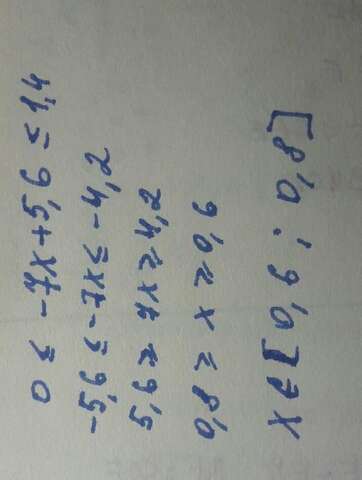 0 ≤ -7x+5,6 ≤ 1,4
-5,6 ≤ -7x ≤ -4,2
5,6 ≥ 7x ≥ 4,2
0,8 ≥ x ≥ 0,6
x ∈ [0,6 ; 0,8]